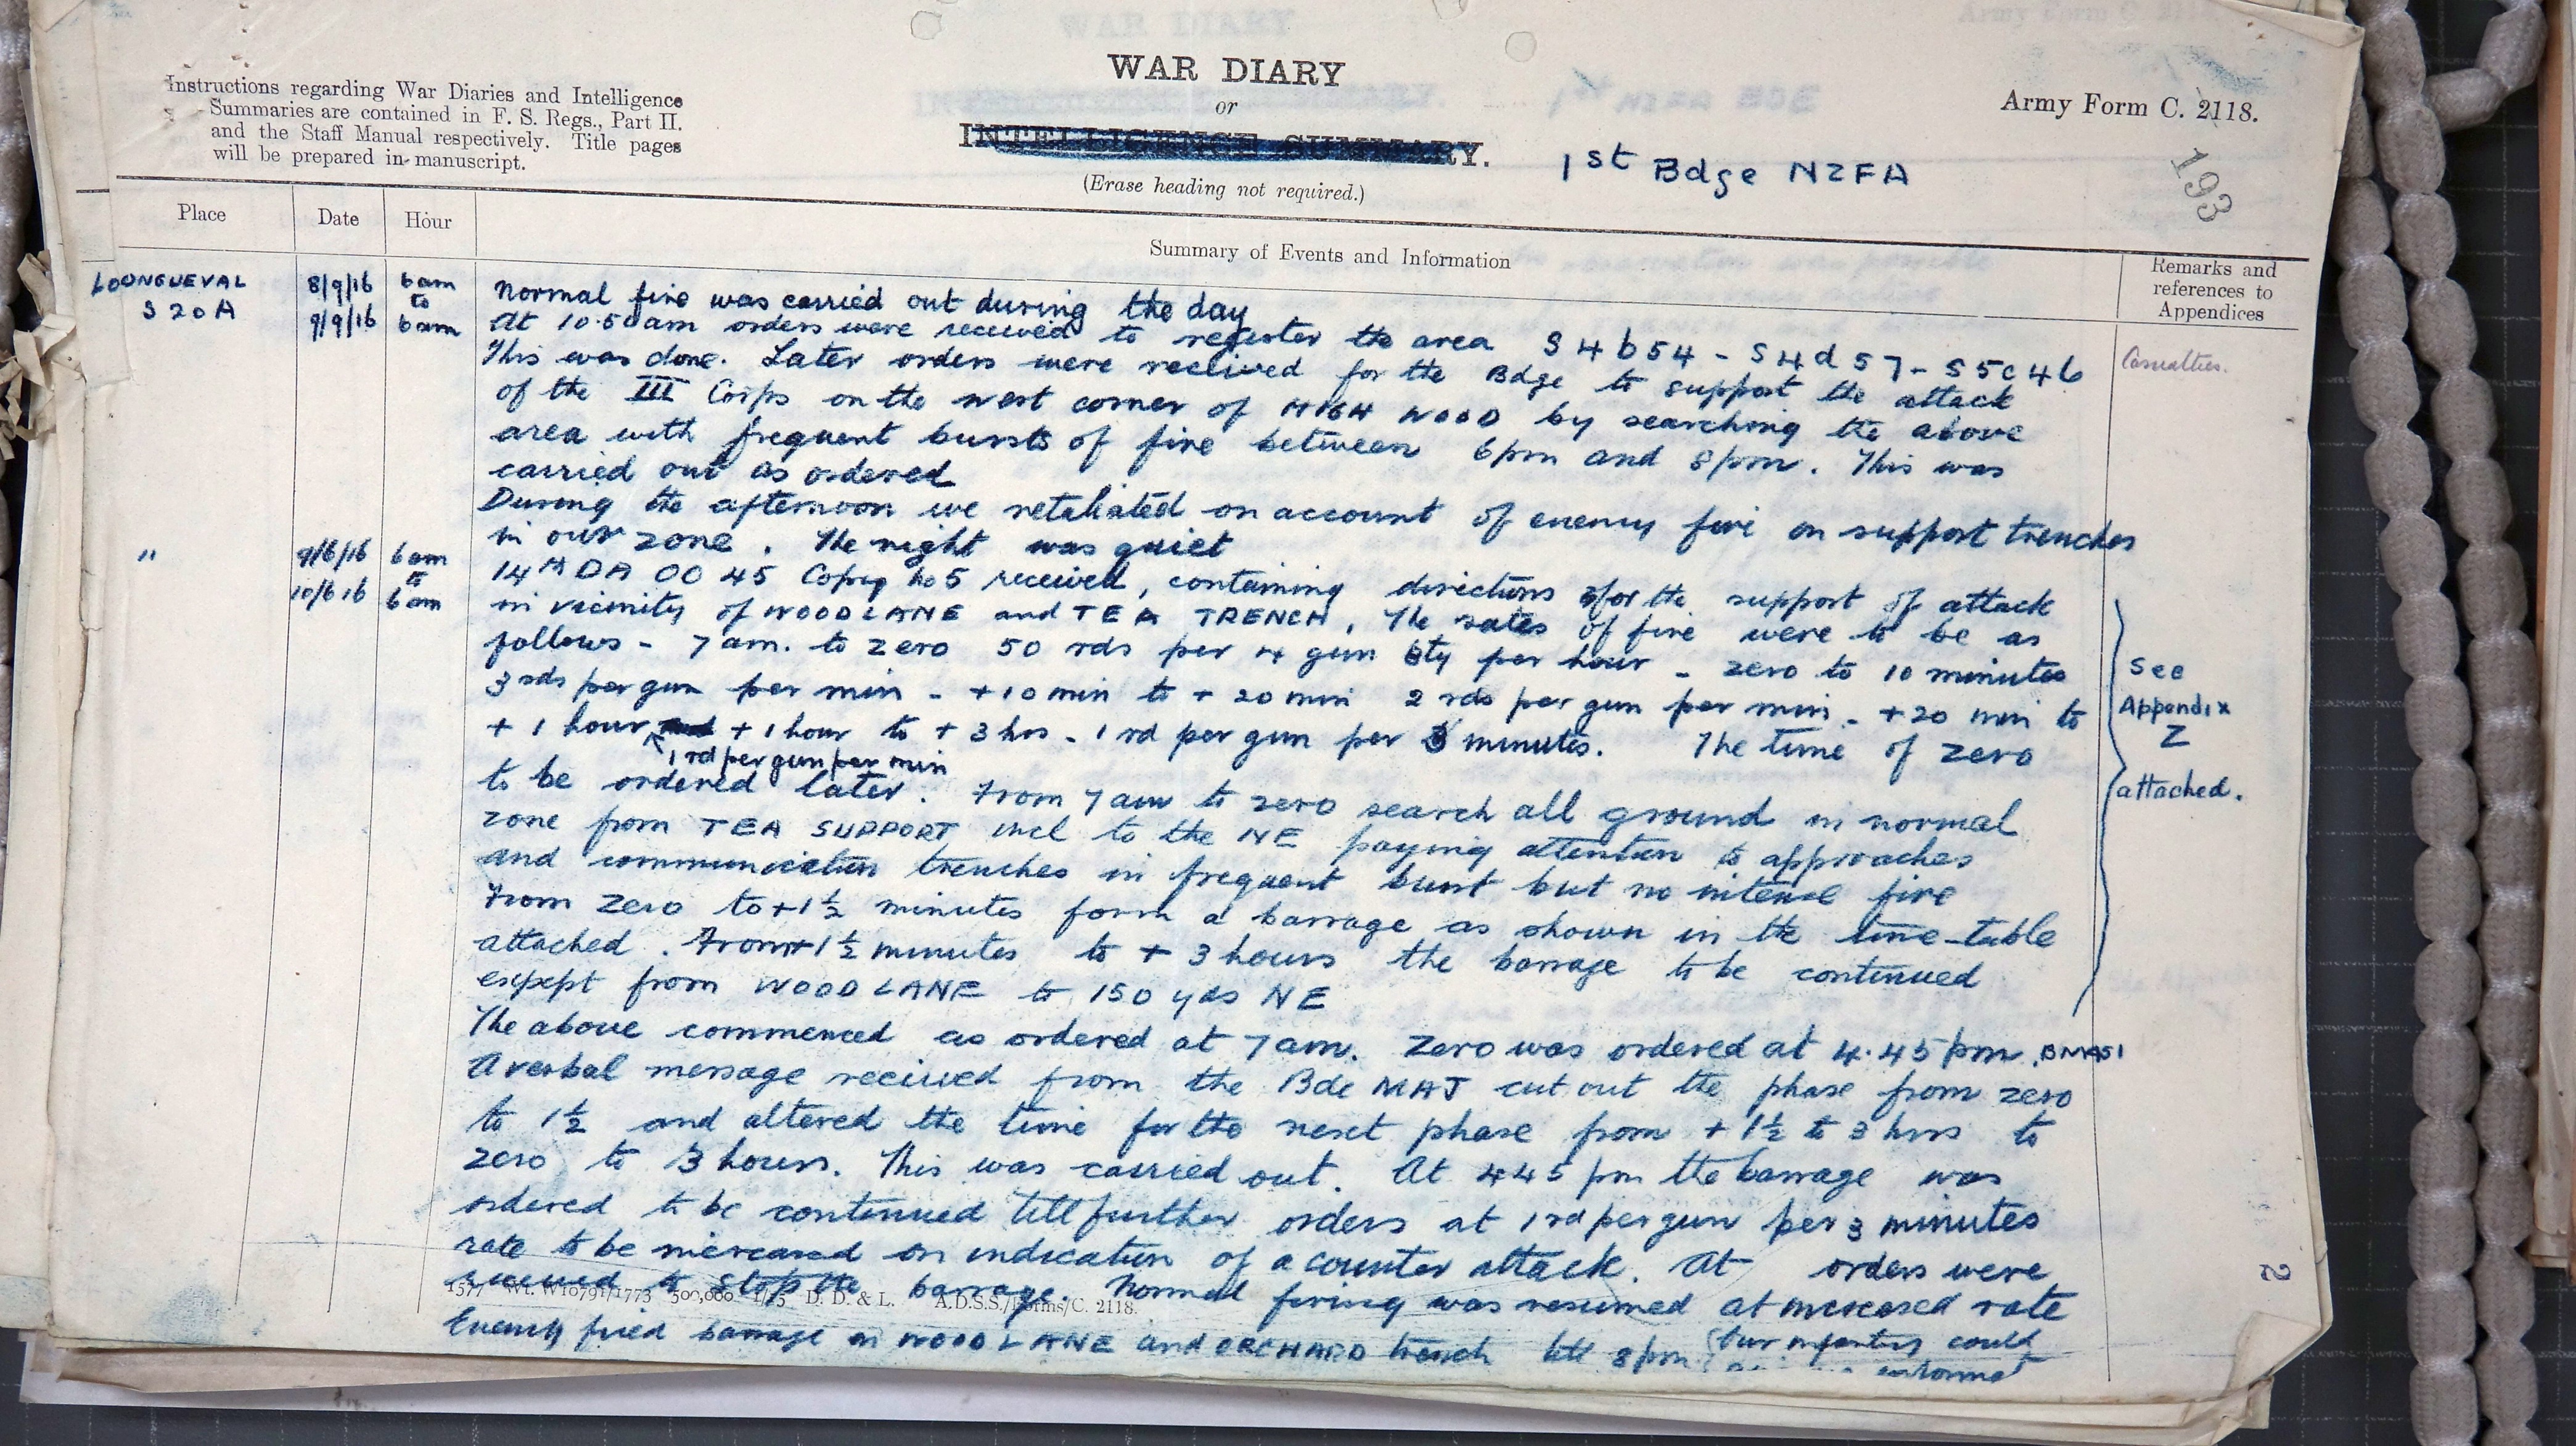 WAR DIARY
or
INTELLIGENCE SUMMARY.
(Erase heading not required.)
Instructions regarding War Diaries and Intelligence
Summaries are contained in F. S. Regs., Part II.
and the Staff Manual respectively. Title pages
will be prepared in manuscript.
Army Form C. 2118.
1st Bdge NZFA
193
Place Date Hour
Summary of Events and Information
Remarks and
references to
Appendices
LOONGUEVAL 8/9/16 6am
to
S20A 9/9/16 6am
Normal fire was carried out during the day
At 10.50am orders were received to register the area S4b54 - S4d57 - S5c46
Casualties.
This was done. Later orders were received for the Bdge to support the attack
of the III Corps on the west corner of HIGH WOOD by searching the above
area with frequent bursts of fire between 6pm and 8pm. This was
carried out as ordered
During the afternoon we retaliated on account of enemy fire on support trenches
in our zone. The night was quiet
" 9/6/16 6am
to
10/6/16 6am
14th DA OO 45 Copy no 5 received, containing directions for the support of attack
in vicinity of WOOD LANE and TEA TRENCH. The rates of fire were to be as
follows - 7am. to zero 50 rds per 4 gun bty per hour - zero to 10 minutes
3 rds per gun per min - +10 min to + 20 min 2 rds per gun per min - +20 min to
+ 1 hour + 1 hour to + 3 hrs - 1 rd per gun per 3 minutes. The time of zero
1 rd per gun per min
to be ordered later. From 7am to zero search all ground in normal
zone from TEA SUPPORT incl to the NE paying attention to approaches
and communication trenches in frequent burst but no intense fire
From zero to +1½ minutes form a barrage as shown in the time-table
attached. From +1½ minutes to + 3 hours the barrage to be continued
except from WOOD LANE to 150 yds NE
See
Appendix
Z
attached.
The above commenced as ordered at 7am. Zero was ordered at 4.45pm. BM951
A verbal message received from the Bde MAJ cut out the phase from zero
to 1½ and altered the time for the next phase from + 1½ to 3 hrs to
zero to 3 hours. This was carried out. At 445 pm the barrage was
ordered to be continued till further orders at 1 rd per gun per 3 minutes
rate to be increased on indication of a counter attack. At orders were
received to stop the barrage. Normal firing was resumed at increased rate
1577 Wt. W10791/1773 500,000 1/15 D. D. & L. A.D.S.S./Forms/C. 2118.
Enemy fired barrage on WOOD LANE and ORCHARD trench till 8pm (our infantry could
2